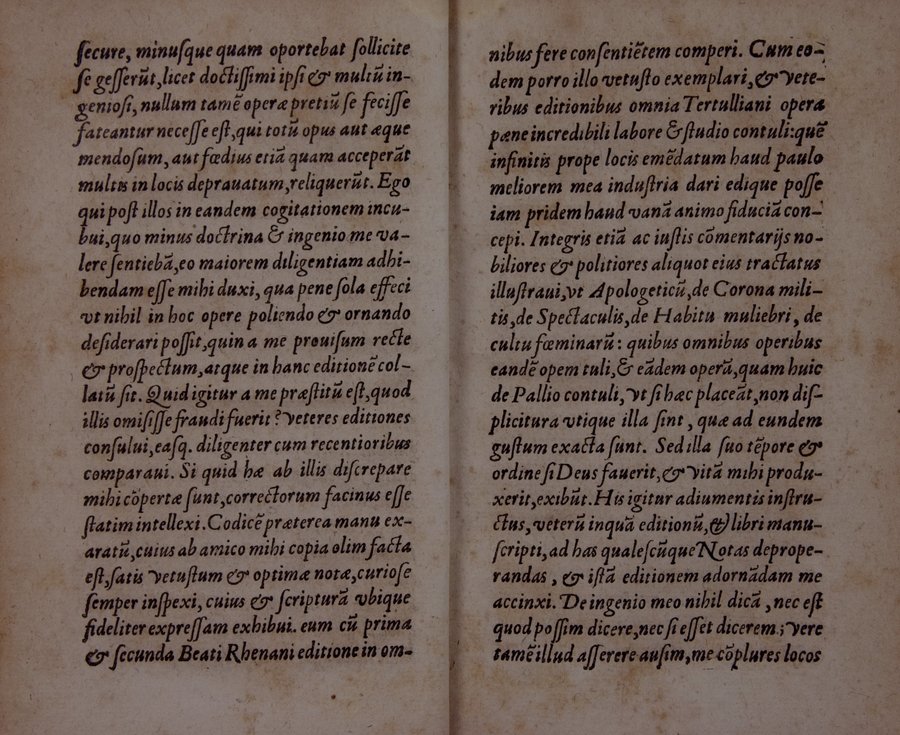 ſecure, minuſque quam oportebat ſollicite
ſe geſſerũt, licet doctiſſimi ipſi & multũ in-
genioſi, nullum tamẽ operæ pretiũ ſe feciſſe
fateantur neceſſe eſt, qui totũ opus aut æque
mendoſum, aut fœdius etiã quam acceperãt
multis in locis deprauatum, reliquerũt. Ego
qui poſt illos in eandem cogitationem incu-
bui, quo minus doctrina & ingenio me va-
lere ſentiebã, eo maiorem diligentiam adhi-
bendam eſſe mihi duxi, qua pene ſola effeci
vt nihil in hoc opere poliendo & ornando
deſiderari poſſit, quin a me prouiſum recte
& proſpectum, atque in hanc editionẽ col-
latũ ſit. Quid igitur a me præſtitũ eſt, quod
illis omiſiſſe fraudi fuerit? Veteres editiones
conſului, eaſq. diligenter cum recentioribus
comparaui. Si quid hæ ab illis diſcrepare
mihi cõpertæ ſunt, correctorum facinus eſſe
ſtatim intellexi. Codicẽ præterea manu ex-
aratũ, cuius ab amico mihi copia olim facta
eſt, ſatis vetuſtum & optimæ notæ, curioſe
ſemper inſpexi, cuius & ſcripturã vbique
fideliter expreſſam exhibui. eum cũ prima
& ſecunda Beati Rhenani editione in om-
nibus fere conſentiẽtem comperi. Cum eo-
dem porro illo vetuſto exemplari, & vete-
ribus editionibus omnia Tertulliani opera
pæne incredibili labore & ſtudio contuli: quẽ
infinitis prope locis emẽdatum haud paulo
meliorem mea induſtria dari edique poſſe
iam pridem haud vanã animo fiduciã con-
cepi. Integris etiã ac iuſtis cõmentarijs no-
biliores & politiores aliquot eius tractatus
illuſtraui, vt Apologeticũ, de Corona mili-
tis, de Spectaculis, de Habitu muliebri, de
cultu fœminarũ: quibus omnibus operibus
eandẽ opem tuli, & eãdem operã, quam huic
de Pallio contuli, vt ſi hæc placeãt, non diſ-
plicitura vtique illa ſint, quæ ad eundem
guſtum exacta ſunt. Sed illa ſuo tẽpore &
ordine ſi Deus fauerit, & vitã mihi produ-
xerit, exibũt. His igitur adiumentis inſtru-
ctus, veterũ inquã editionũ, & libri manu-
ſcripti, ad has qualeſcũque Notas deprope-
randas, & iſtã editionem adornãdam me
accinxi. De ingenio meo nihil dicã, nec eſt
quod poſſim dicere, nec ſi eſſet dicerem; vere
tamẽ illud aſſerere auſim, me cõplures locos